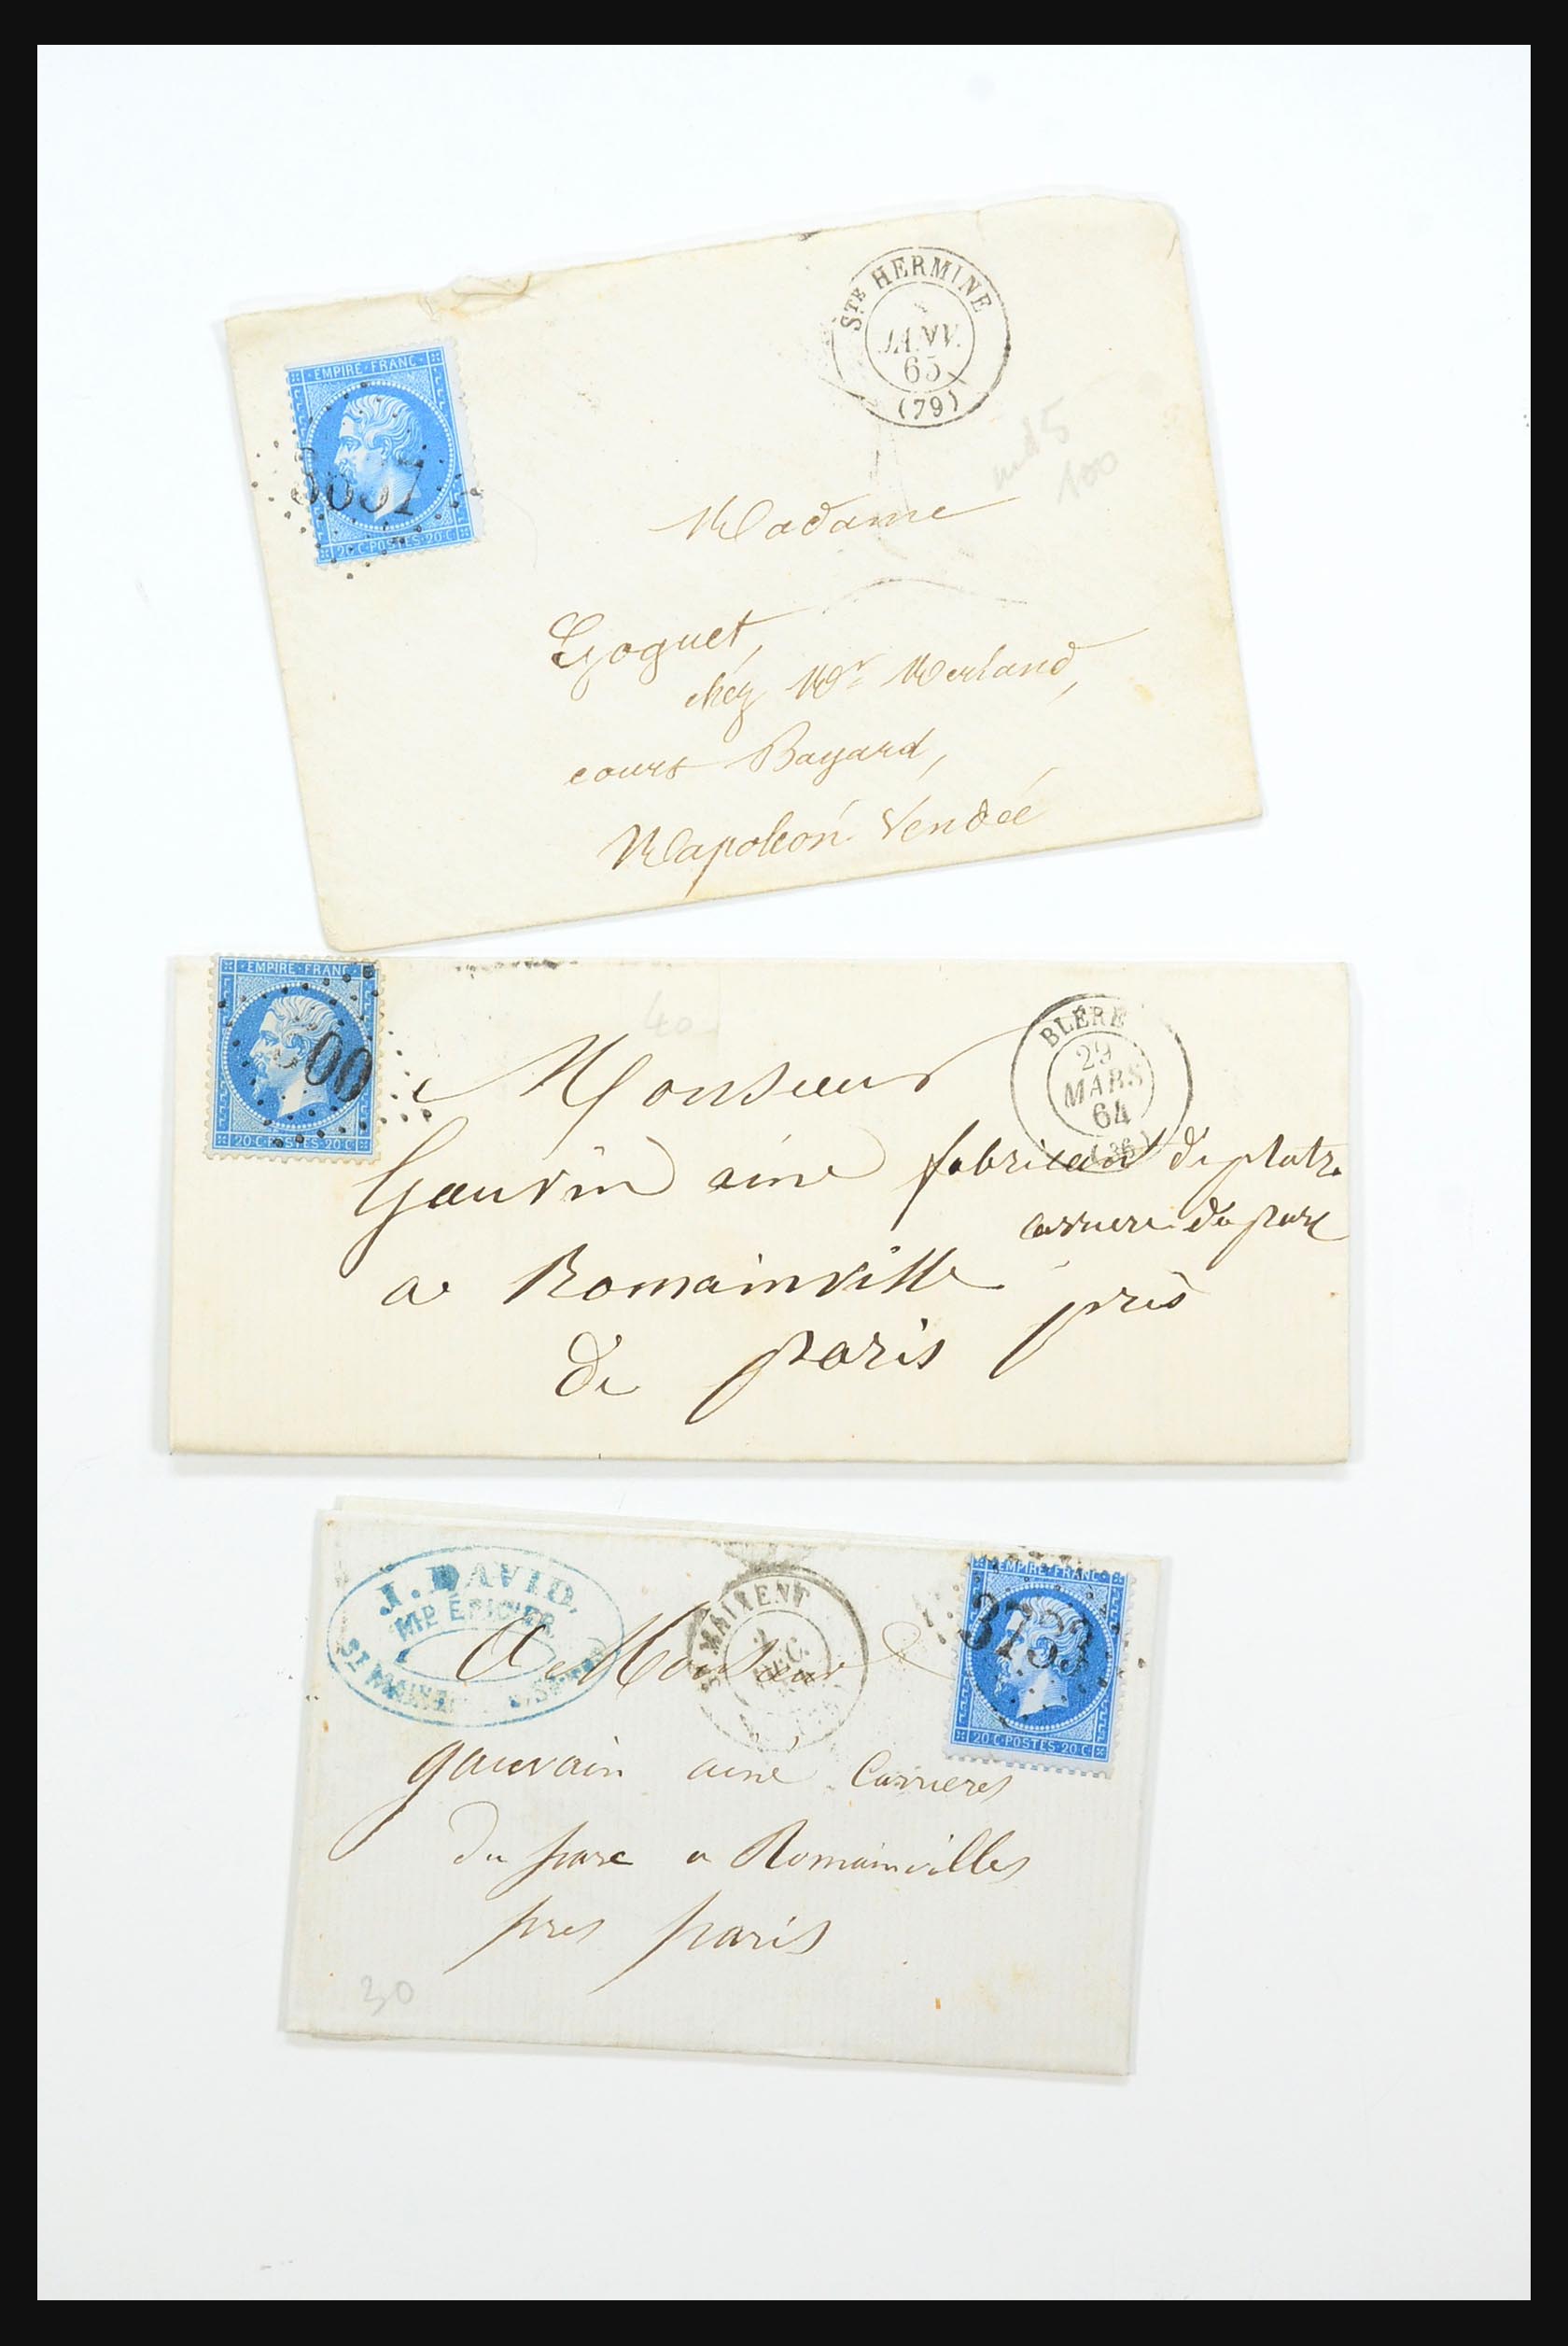 STE HERMINE
JANV.
65
(79)
EMPIRE·FRANC
20 C·POSTES·20 C
100
Madame
Goguet,
chez Mr Merland,
cours Bayard,
Napoléon Vendée
EMPIRE·FRANC
00
20 C·POSTES·20 C
40
BLÉRÉ
29
MARS
64
(36)
Monsieur
Gauvin ainé fabricant de platre
carriere du parc
a Romainville près
de paris
J. DAVID.
MD ÉPICIER
ST MAIXENT
MAIXENT
EMPIRE·FRANC
3733
20 C·POSTES·20 C
A Monsieur
gauvain ainé Carrieres
du parc a Romainvilles
pres paris
30